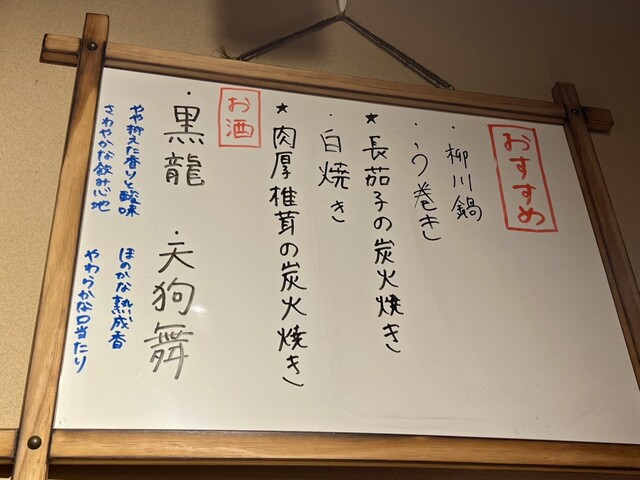 おすすめ
・柳川鍋
・う巻き
★長茄子の炭火焼き
・白焼き
★肉厚椎茸の炭火焼き
お酒
・黒龍
やや抑えた香りと酸味
さわやかな飲み心地
・天狗舞
ほのかな熟成香
やわらかな口当たり